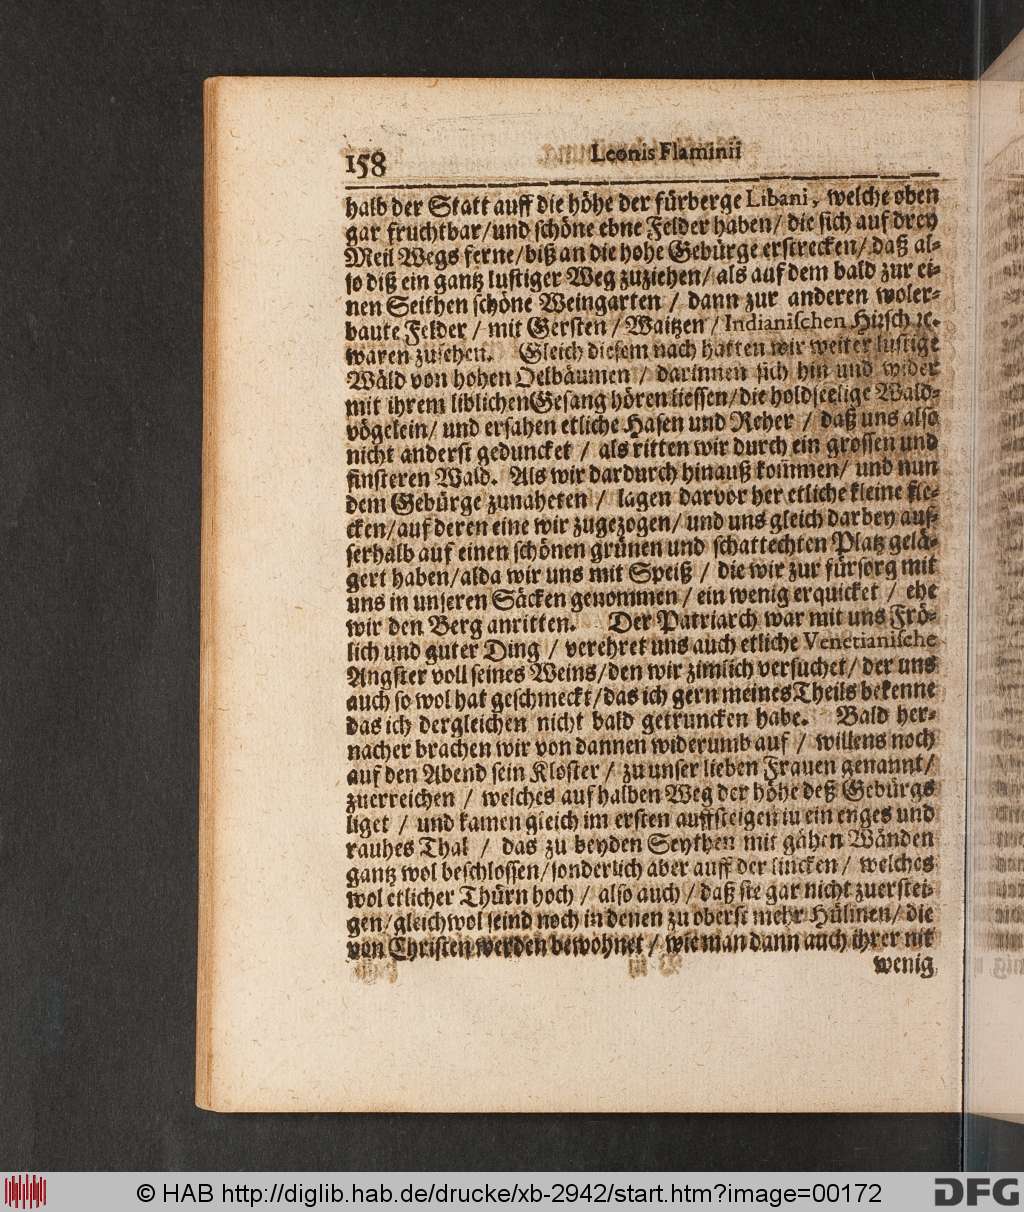 158
Leonis Flaminii
halb der Statt auff die höhe der fürberge Libani, welche oben
gar fruchtbar/und schöne ebne Felder haben/ die sich auf drey
Meil Wegs ferne/biß an die hohe Gebürge erstrecken/ daß al-
so diß ein gantz lustiger Weg zuziehen/ als auf dem bald zur ei-
nen Seithen schöne Weingarten / dann zur anderen woler-
baute Felder / mit Gersten / Waitzen / Indianischen Hirsch ꝛc.
waren zusehen. Gleich diesem nach hatten wir weiter lustige
Wäld von hohen Oelbäumen / darinnen sich hin und wider
mit ihrem liblichen Gesang hören liessen/die holdseelige Wald-
vögelein/ und ersahen etliche Hasen und Reher / daß uns also
nicht anderst geduncket / als ritten wir durch ein grossen und
finsteren Wald. Als wir dardurch hinauß kom̃men/ und nun
dem Gebürge zunaheten / lagen darvor her etliche kleine Fle-
cken/auf deren eine wir zugezogen/ und uns gleich darbey aus-
serhalb auf einen schönen grünen und schattechten Platz gelä-
gert haben/alda wir uns mit Speiß / die wir zur fürsorg mit
uns in unseren Säcken genommen / ein wenig erquicket / ehe
wir den Berg anritten. Der Patriarch war mit uns Frö-
lich und guter Ding / verehret uns auch etliche Venetianische
Angster voll seines Weins/den wir zimlich versuchet/ der uns
auch so wol hat geschmeckt/das ich gern meines Theils bekenne
das ich dergleichen nicht bald getruncken habe. Bald her-
nacher brachen wir von dannen widerumb auf / willens noch
auf den Abend sein Kloster / zu unser lieben Frauen genannt/
zuerreichen / welches auf halben Weg der höhe deß Gebürgs
liget / und kamen gleich im ersten auffsteigen in ein enges und
rauhes Thal / das zu beyden Seythen mit gähen Wänden
gantz wol beschlossen/sonderlich aber auff der lincken / welches
wol etlicher Thürn hoch / also auch / daß sie gar nicht zuerstei-
gen/gleichwol seind noch in denen zu oberst mehr Hülinen/ die
von Christen werden bewohnet / wie man dann auch ihrer nit
wenig
© HAB http://diglib.hab.de/drucke/xb-2942/start.htm?image=00172
DFG